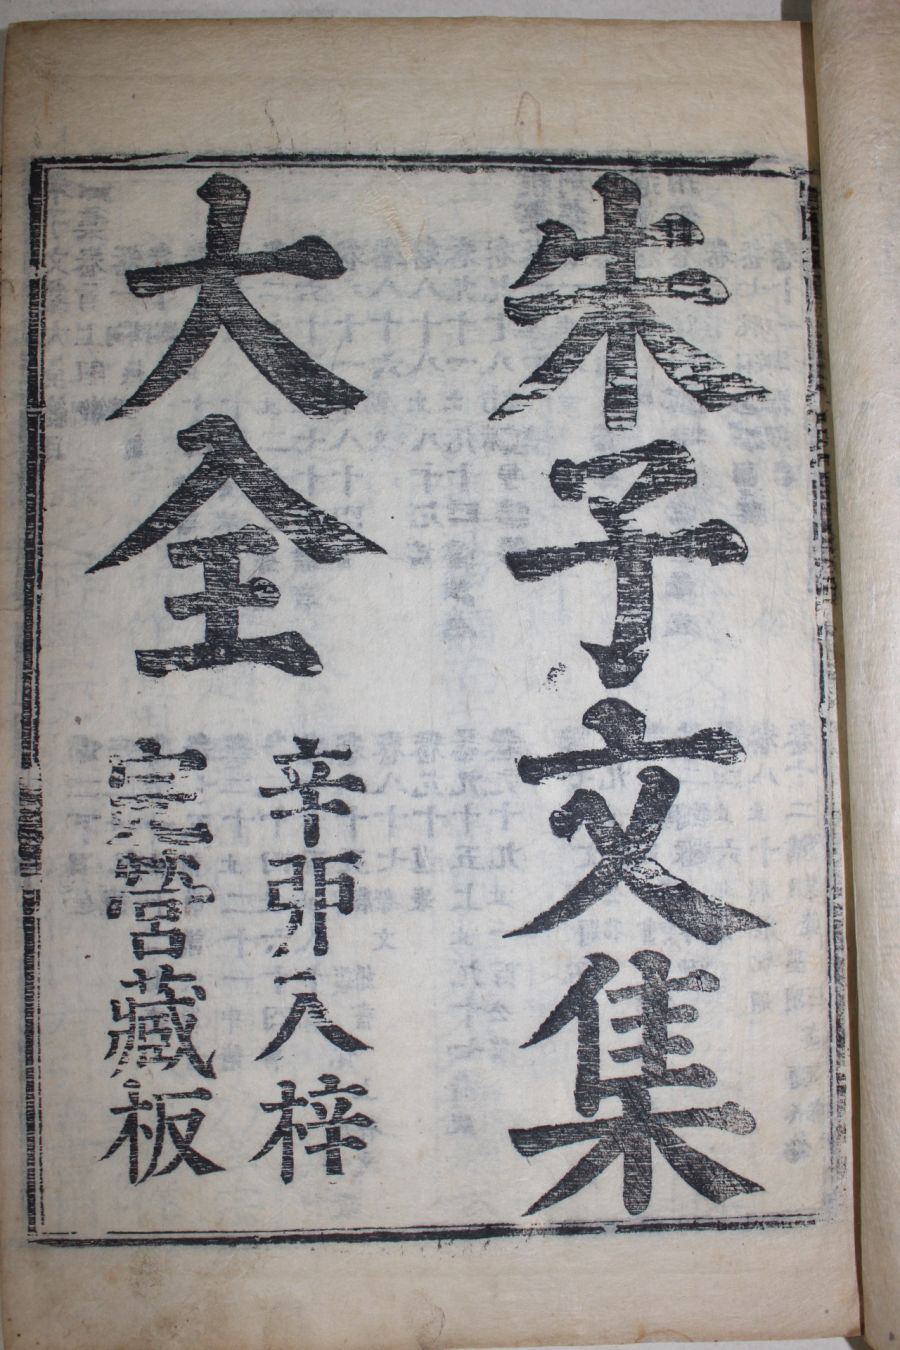 朱子文集
大全
辛卯入梓
完營藏板